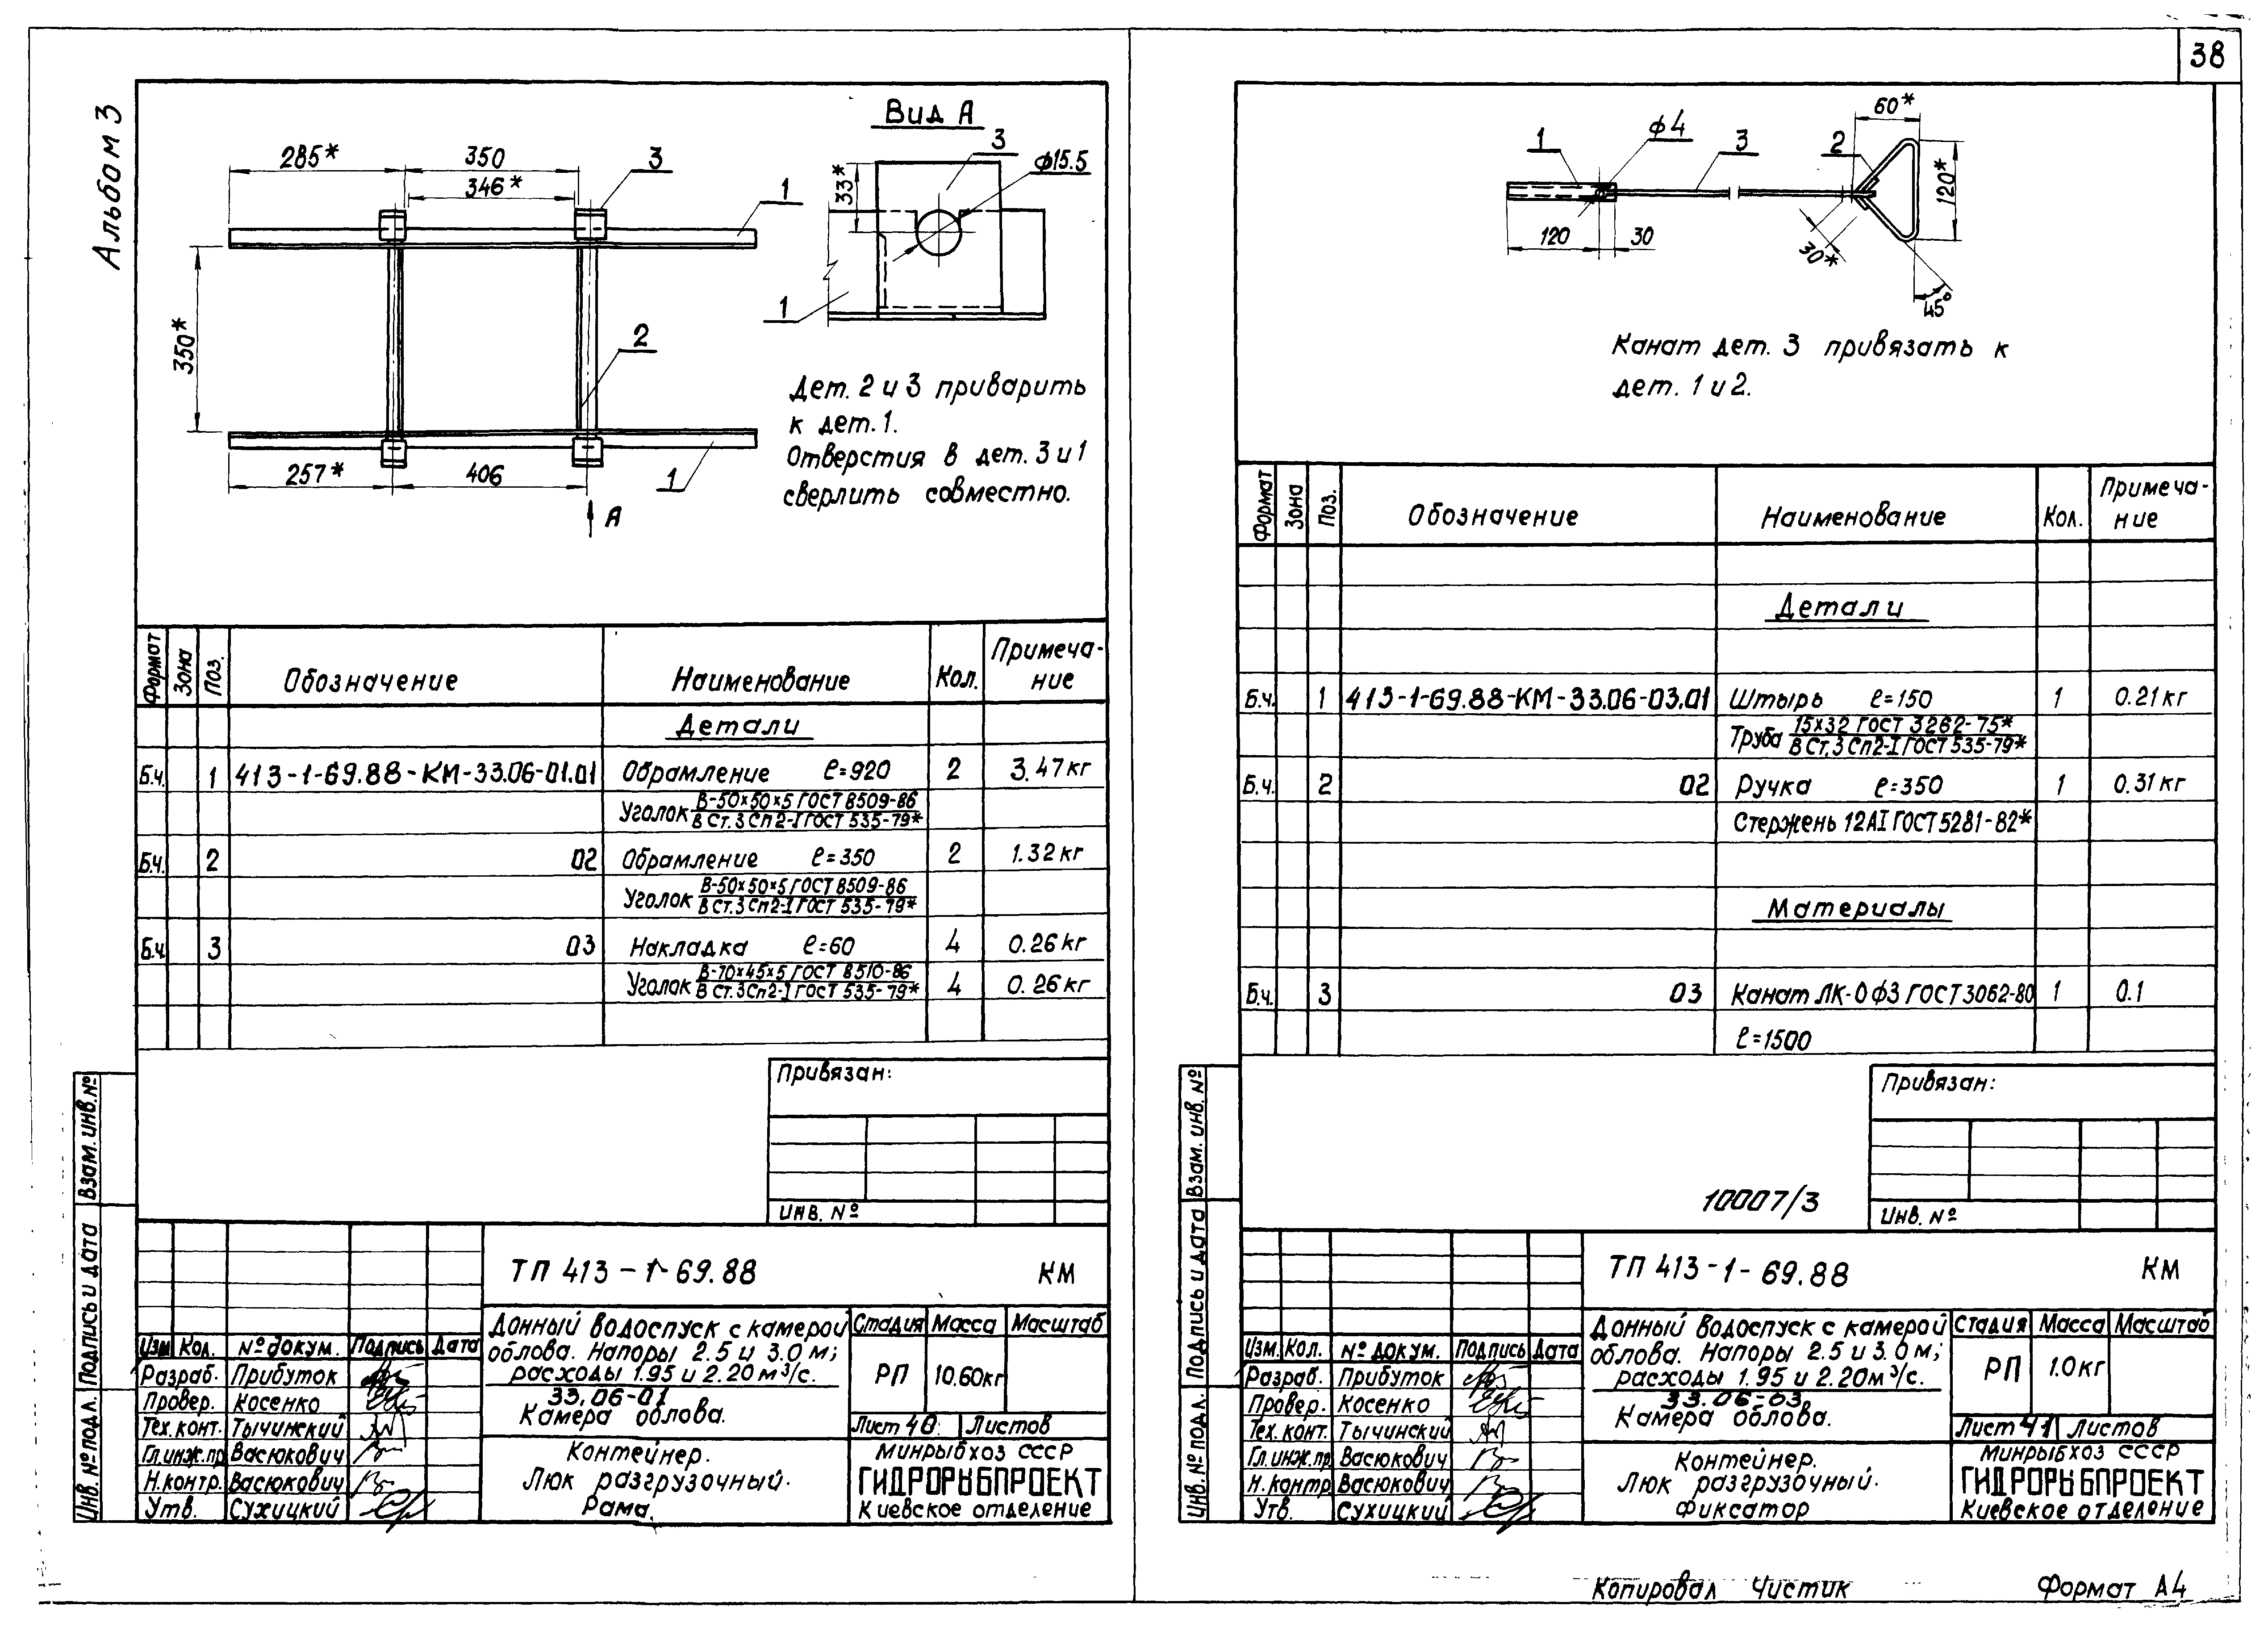 38
Альбом 3
285*
350
346*
3
1
350*
2
257*
406
1
А
Вид А
33*
3
ф15.5
1
Дет. 2 и 3 приварить
к дет. 1.
Отверстия в дет. 3 и 1
сверлить совместно.
Формат Зона Поз. Обозначение Наименование Кол. Примеча-
ние
Детали
Б.ч. 1 413-1-69.88-КМ-33.06-01.01 Обрамление ℓ=920 2 3.47 кг
Уголок В-50×50×5 ГОСТ 8509-86
В Ст.3 Сп2-I ГОСТ 535-79*
Б.ч. 2 02 Обрамление ℓ=350 2 1.32 кг
Уголок В-50×50×5 ГОСТ 8509-86
В Ст.3 Сп2-I ГОСТ 535-79*
Б.ч. 3 03 Накладка ℓ=60 4 0.26 кг
Уголок В-70×45×5 ГОСТ 8510-86 4 0.26 кг
В Ст.3 Сп2-I ГОСТ 535-79*
Привязан:
Инв. №
Взам. инв. №
Подпись и дата
Инв. № подл.
ТП 413-1-69.88 КМ
Изм Кол. № докум. Подпись Дата
Разраб. Прибуток
Провер. Косенко
Тех. конт. Тычинский
Гл.инж.пр Васюкович
Н.контр. Васюкович
Утв. Сухицкий
Донный водоспуск с камерой
облова. Напоры 2.5 и 3.0 м;
расходы 1.95 и 2.20 м³/с.
33.06-01
Камера облова.
Контейнер.
Люк разгрузочный.
Рама.
Стадия Масса Масштаб
РП 10.60кг
Лист 40 Листов
Минрыбхоз СССР
ГИДРОРЫБПРОЕКТ
Киевское отделение
1
ф4
3
2
60*
120*
120
30
30*
45°
Канат дет. 3 привязать к
дет. 1 и 2.
Формат Зона Поз. Обозначение Наименование Кол. Примеча-
ние
Детали
Б.ч. 1 413-1-69.88-КМ-33.06-03.01 Штырь ℓ=150 1 0.21 кг
Труба 15×32 ГОСТ 3262-75*
В Ст.3 Сп2-I ГОСТ 535-79*
Б.ч. 2 02 Ручка ℓ=350 1 0.31 кг
Стержень 12АI ГОСТ 5281-82*
Материалы
Б.ч. 3 03 Канат ЛК-О ф3 ГОСТ 3062-80 1 0.1
ℓ=1500
Привязан:
Инв. №
10007/3
Взам. инв. №
Подпись и дата
Инв. № подл.
ТП 413-1-69.88 КМ
Изм. Кол. № докум. Подпись Дата
Разраб. Прибуток
Провер. Косенко
Тех. конт. Тычинский
Гл.инж.пр Васюкович
Н.контр Васюкович
Утв. Сухицкий
Донный водоспуск с камерой
облова. Напоры 2.5 и 3.0 м;
расходы 1.95 и 2.20 м³/с.
33.06-03
Камера облова.
Контейнер.
Люк разгрузочный.
Фиксатор
Стадия Масса Масштаб
РП 1.0 кг
Лист 41 Листов
Минрыбхоз СССР
ГИДРОРЫБПРОЕКТ
Киевское отделение
Копировал Чистик Формат А4